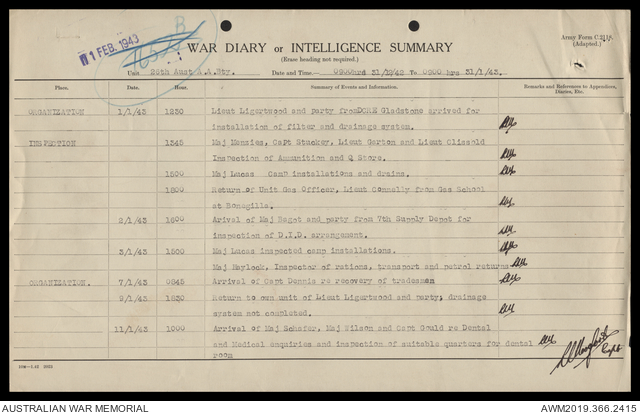 1 FEB. 1943
B
WAR DIARY or INTELLIGENCE SUMMARY
(Erase heading not required.)
Army Form C.2118.
(Adapted.)
Unit 26th Aust A.A.Bty. Date and Time 0900hrs 31/12/42 to 0900 hrs 31/1/43.
Place. Date. Hour. Summary of Events and Information. Remarks and References to Appendices, Diaries, Etc.
ORGANIZATION 1/1/43 1230 Lieut Ligertwood and party from DCRE Gladstone arrived for
installation of filter and drainage system.
INSPECTION 1345 Maj Menzies, Capt Stuckey, Lieut Garton and Lieut Clisold
Inspection of Ammunition and Q Store.
1500 Maj Lucas Camp installations and drains.
1800 Return of Unit Gas Officer, Lieut Connelly from Gas School
at Bonegilla.
2/1/43 1600 Arival of Maj Baget and party from 7th Supply Depot for
inspection of D.I.D. arrangement.
3/1/43 1500 Maj Lucas inspected camp installations.
Maj Haylock, Inspector of rations, transport and petrol returns
ORGANIZATION. 7/1/43 0845 Arrival of Capt Dennis re recovery of tradesmen
9/1/43 1830 Return to own unit of Lieut Ligertwood and party; drainage
system not completed.
11/1/43 1000 Arrival of Maj Schafer, Maj Wilson and Capt Gould re Dental
and Medical enquiries and inspection of suitable quarters for dental
room
Capt
AUSTRALIAN WAR MEMORIAL AWM2019.366.2415